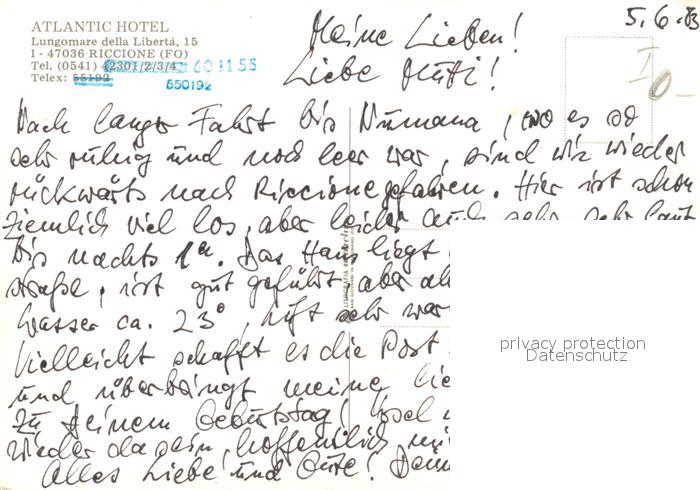 ATLANTIC HOTEL
Lungomare della Libertà, 15
I - 47036 RICCIONE (FO)
Tel. (0541) 42301/2/3/4 601155
Telex: 55192 550192
5.6.83
Meine Lieben!
Liebe Mutti!
Nach langer Fahrt bis Numana, wo es so
sehr ruhig und noch leer war, sind wir wieder
rückwärts nach Riccione gefahren. Hier ist schon
ziemlich viel los, aber leider auch sehr sehr laut
bis nachts 1h. Das Haus liegt
straße, ist gut geführt aber
Wasser ca. 23°, Luft sehr war
Vielleicht schafft es die Post
und überbringt meine lie
zu Deinem Geburtstag!
wieder da sein, hoffentlich
Alles Liebe und Gute!
LITOGRAFIA
privacy protection
Datenschutz